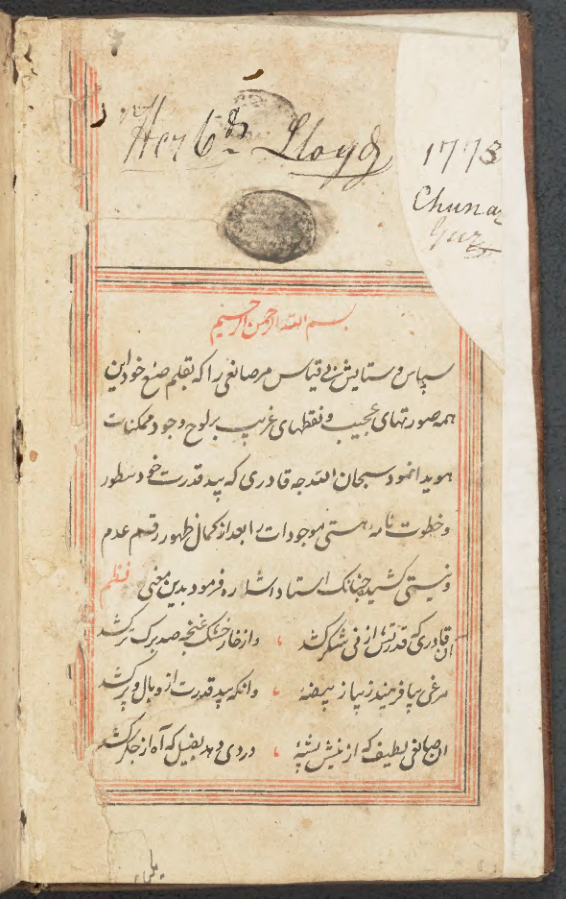 Herbᵗ Lloyd
1773
Chunar
Gur
بسم الله الرحمن الرحیم
سپاس و ستایش بی قیاس مر صانعی را که بقلم صنع خود این
همه صورتهای عجیب و نقطهای غریب بر لوح وجود ممکنات
هویدا نمود سبحان الله چه قادری که بید قدرت خود سطور
و خطوت نامه هستی موجودات را بعد از کمال ظهور رقم عدم
و نیستی کشید چنانک استاد اشاره فرمود بدین معنی نظم
آن قادری که قدرتش از نی شکر کشد ، و از خار خشک غنچه صد برک تر کشد
مرغی بیافریند ز بیضه ، وانکه بید قدرت ازو بال و پر کشد
آن صانعی لطیف که از نیش پشهٔ ، دردی دهد بفیل که آه از جگر کشد